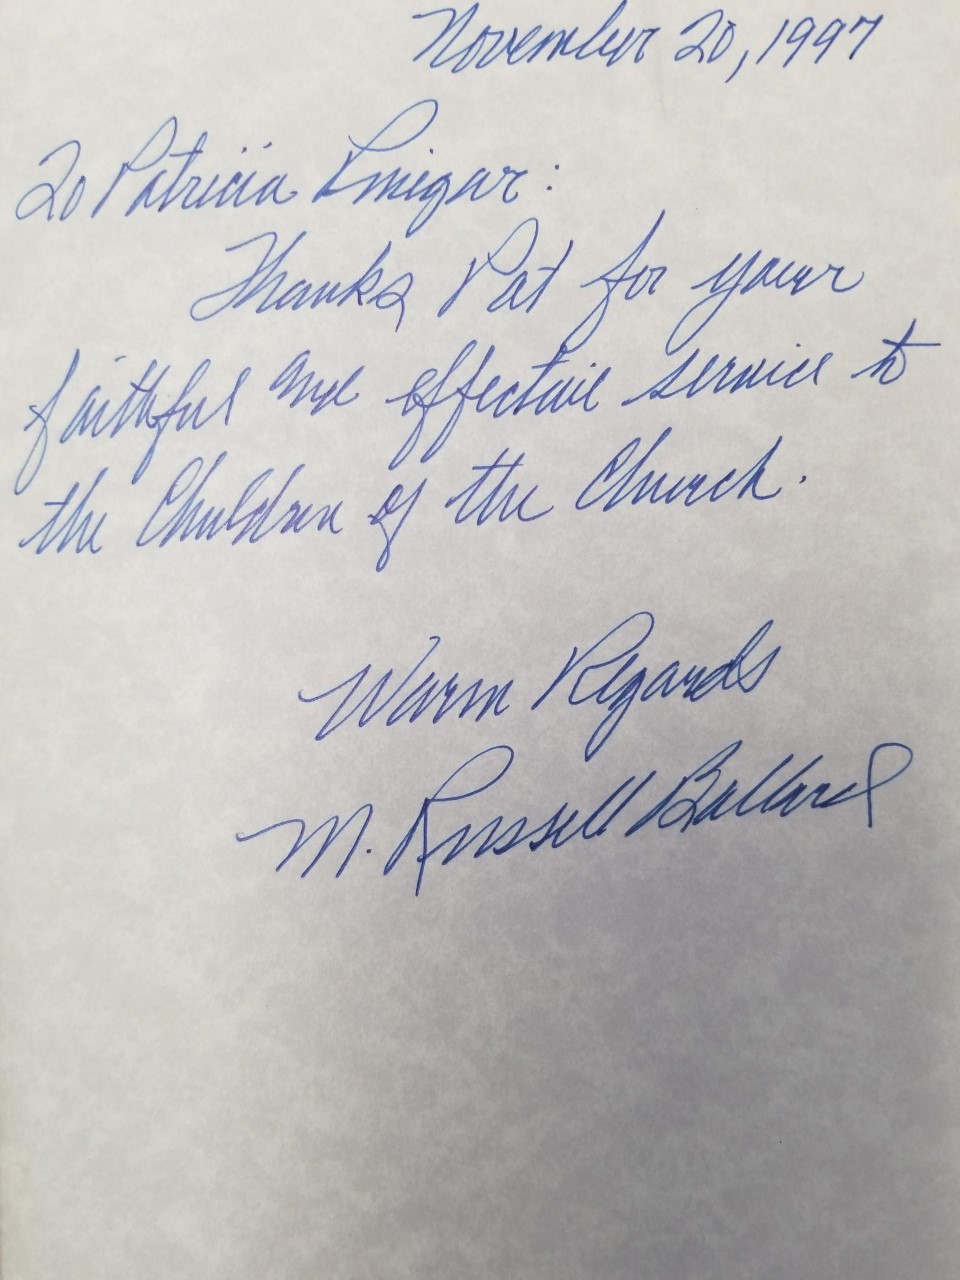 November 20, 1997
To Patricia Pinegar:
Thanks Pat for your
faithful and effective service to
the Children of the Church.
Warm Regards
M. Russell Ballard